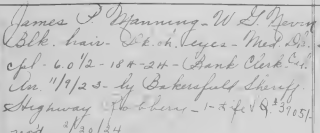 James P Manning - W. G. Nevin
Blk. hair - Dk. ch. eyes - Med Dk.
cpl. 6.0½ - 184 - 24 - Bank Clerk Cal.
An. 11/9/23 - by Bakersfield Sheriff.
Highway Robbery - 1-R of Q. #37051-
2/20/24